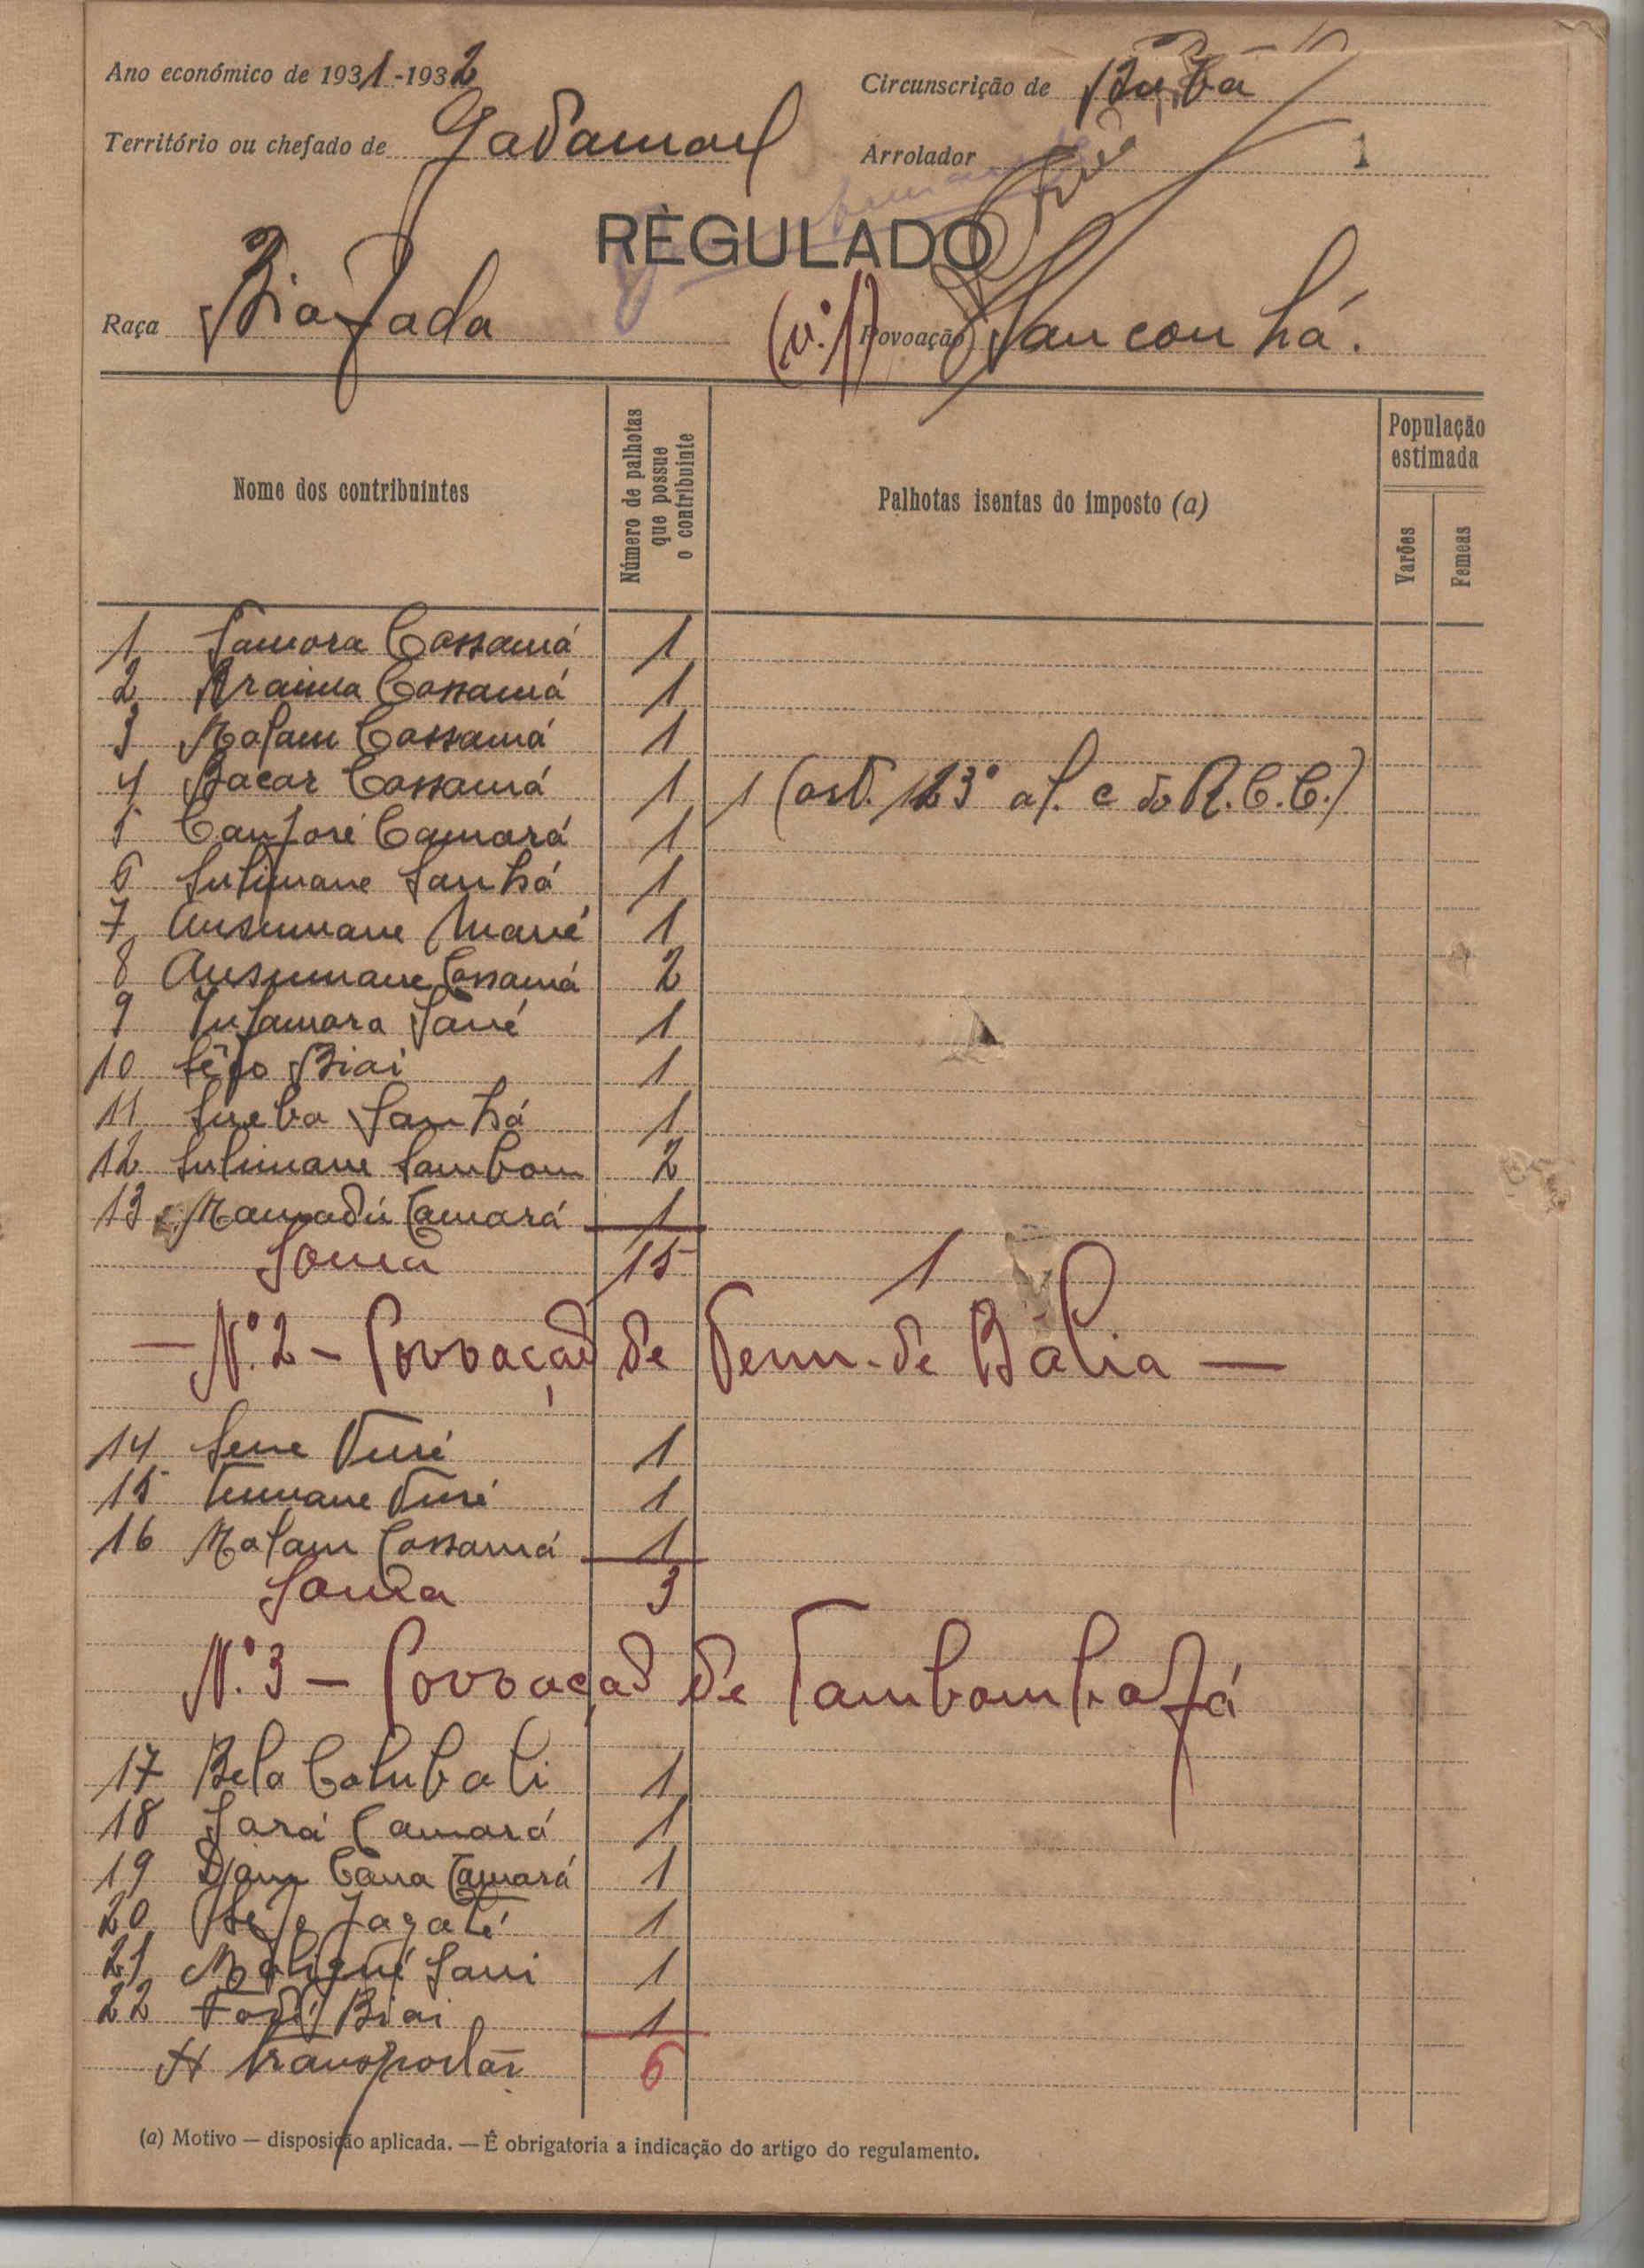 Ano económico de 1931-1932
Circunscrição de Buba
Território ou chefado de Gadamael
Arrolador
1
RÈGULADO
Raça Biafada
(n.º 1) Povoação Sanconhá.
Nome dos contribuintes
Número de palhotas que possue o contribuinte
Palhotas isentas do imposto (a)
População estimada
Varões
Femeas
1 Samora Cassamá 1
2 Braima Cassamá 1
3 Malam Cassamá 1
4 Bacar Cassamá 1 1 (art. 123º al. c do R.C.C.)
5 Canforé Camará 1
6 Sulimane Sanhá 1
7 Ansumane Mané 1
8 Ansumane Cassamá 2
9 Infamara Sané 1
10 Sêfo Biai 1
11 Sireba Sanhá 1
12 Sulimane Sambom 2
13 Mamadú Camará 1
Soma 15 1
— N.º 2 – Povoação de Tenn. de Bália —
14 Sene Turé 1
15 Tumane Turé 1
16 Malam Cassamá 1
Soma 3
N.º 3 – Povoação de Tambambofá
17 Bela Colubali 1
18 Sará Camará 1
19 Djam Cana Camará 1
20 Jagaté 1
21 Maliqui Sani 1
22 Fodé Biai 1
A transportar 6
(a) Motivo — disposição aplicada. — É obrigatoria a indicação do artigo do regulamento.